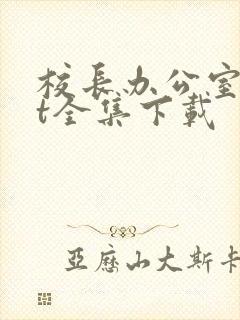 校長办公室
t全集下載
亞歷山大斯卡